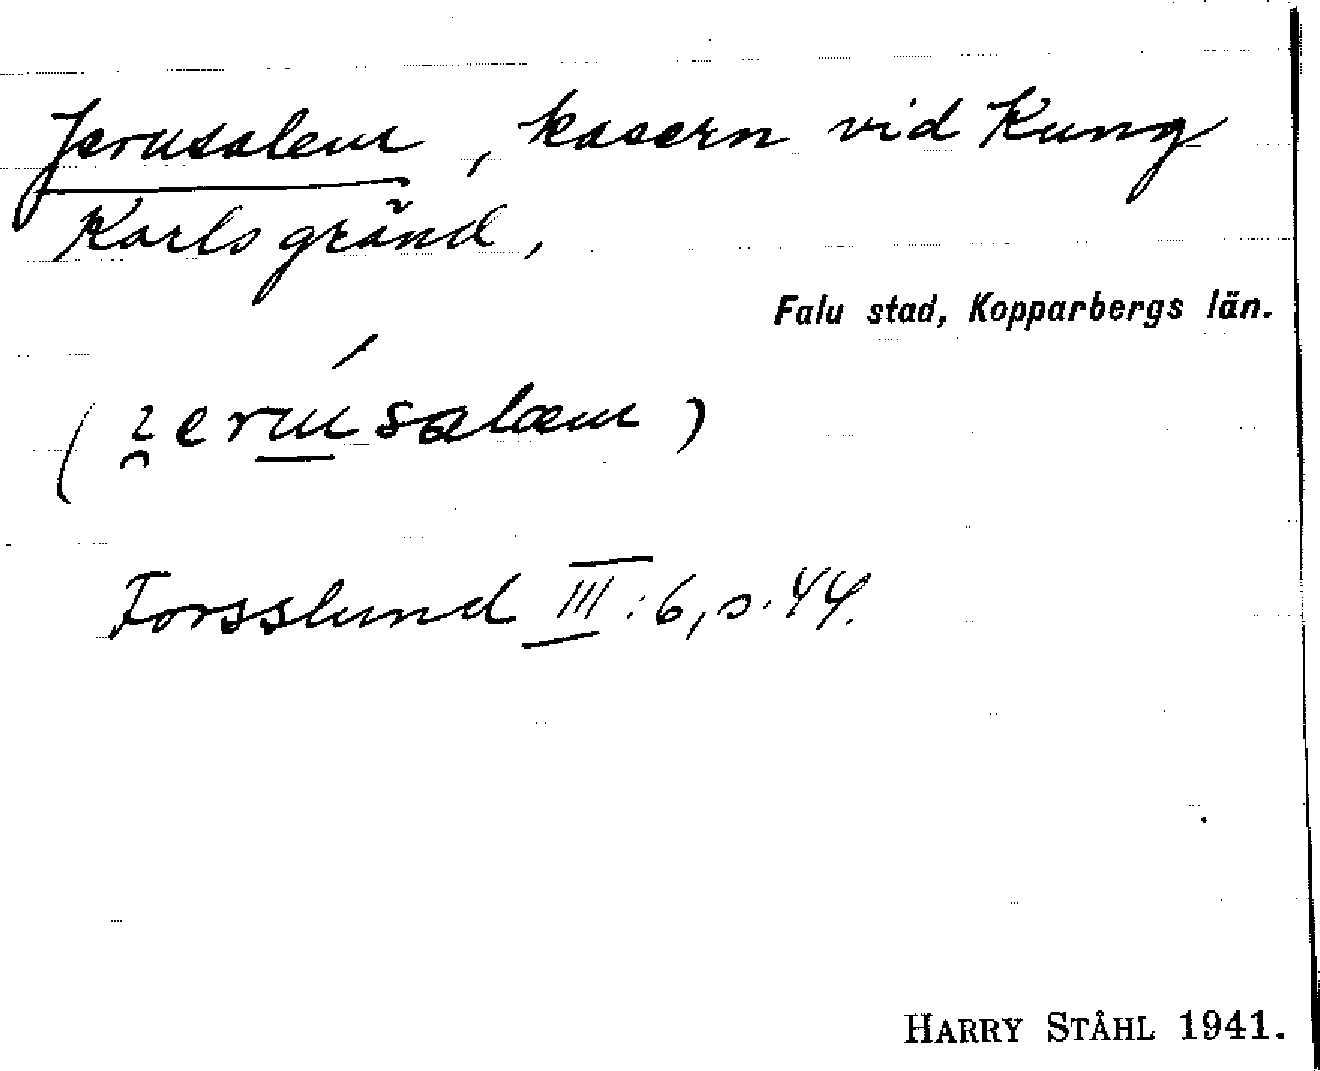 Jerusalem, kasern vid Kung
Karls gränd,
Falu stad, Kopparbergs län.
Forsslund III:6, s. 44.
HARRY STÅHL 1941.